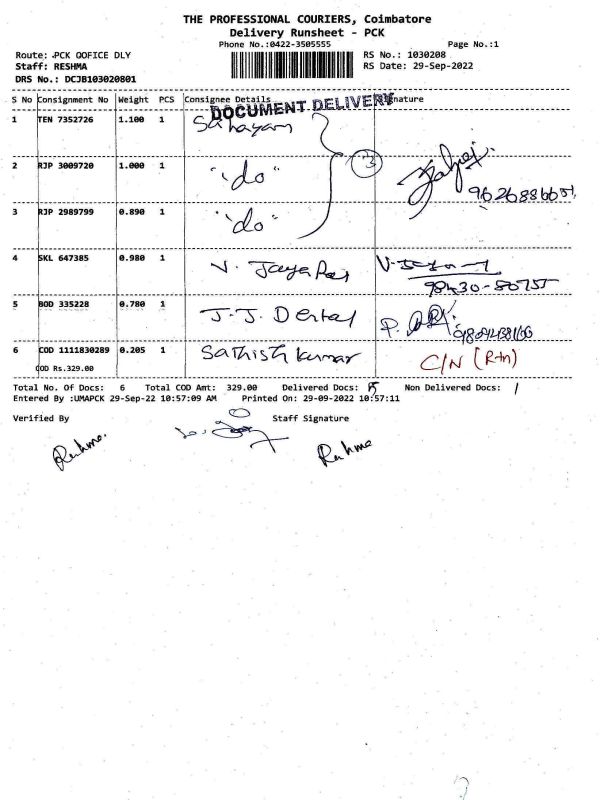 THE PROFESSIONAL COURIERS, Coimbatore
Delivery Runsheet - PCK
Phone No.:0422-3505555 Page No.:1
Route: PCK OOFICE DLY RS No.: 1030208
Staff: RESHMA RS Date: 29-Sep-2022
DRS No.: DCJB103020801
S No Consignment No Weight PCS Consignee Details Signature
DOCUMENT DELIVERY
1 TEN 7352726 1.100 1 Sahayam
3
2 RJP 3009720 1.000 1 "do"
3 RJP 2989799 0.890 1 "do"
4 SKL 647385 0.980 1 V. Jaya Raj
98430-80755
5 BOD 335228 0.780 1 J.J. Dental P.
6 COD 1111830289 0.205 1 Sathish kumar C/N (Rtn)
COD Rs.329.00
Total No. Of Docs: 6 Total COD Amt: 329.00 Delivered Docs: 5 Non Delivered Docs: 1
Entered By :UMAPCK 29-Sep-22 10:57:09 AM Printed On: 29-09-2022 10:57:11
Verified By Staff Signature